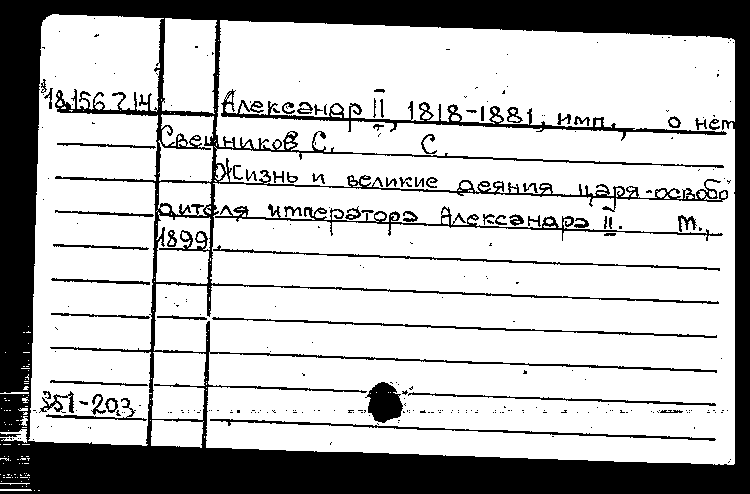 18.156.7.14. Александр II, 1818-1881, имп., о нем
Свешников, С. С.
Жизнь и великие деяния царя-освобо
дителя императора Александра II. М.,
1899.
351-203